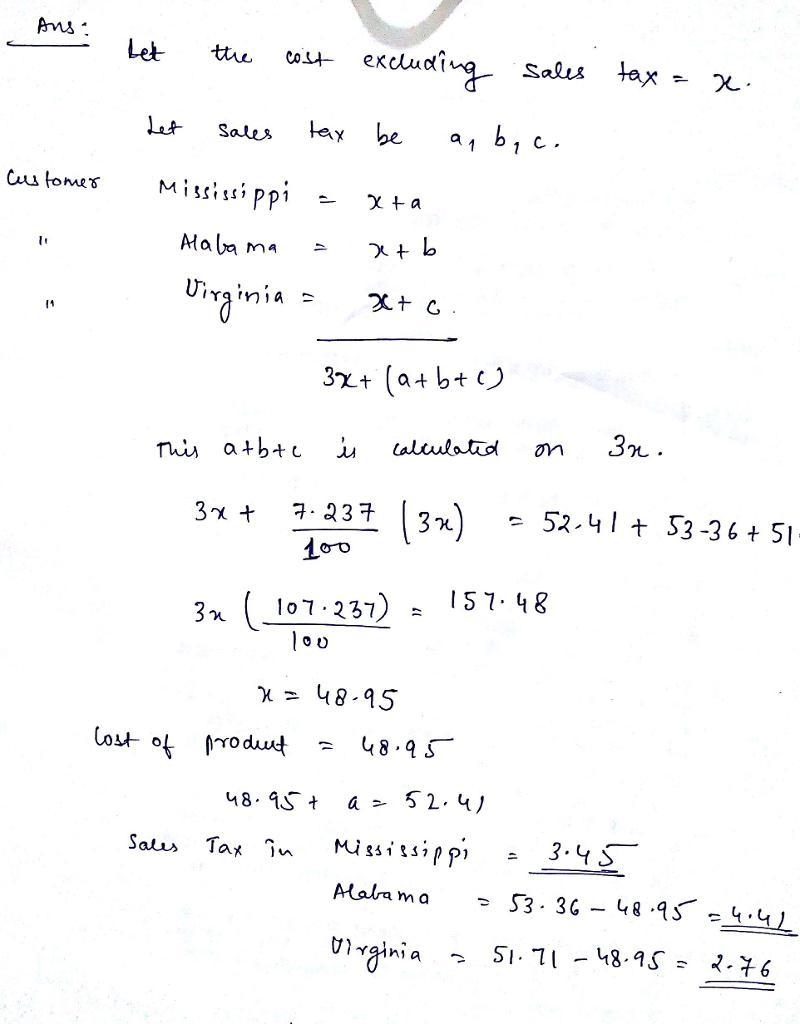 Ans:
Let the cost excluding sales tax = x.
Let sales tax be a, b, c.
Customer Mississippi = x + a
" Alabama = x + b
" Virginia = x + c.
3x + (a + b + c)
This a+b+c is calculated on 3x.
3x + 7.237/100 (3x) = 52.41 + 53-36 + 51.
3x (107.237)/100 = 157.48
x = 48.95
Cost of product = 48.95
48.95 + a = 52.41
Sales Tax in Mississippi = 3.45
Alabama = 53.36 - 48.95 = 4.41
Virginia = 51.71 - 48.95 = 2.76